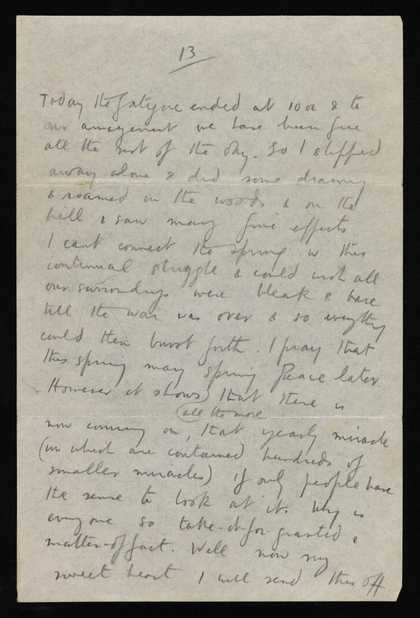 13
Today the fatigue ended at 10 oc & to
our amazement we have been free
all the rest of the day. So I slipped
away alone & did some drawing
& roamed in the woods & on the
hill & saw many fine effects
I cant connect the spring w this
continual struggle & could wish all
our surroundings were bleak & bare
till the war was over & so everything
could then burst forth. I pray that
this spring may spring Peace later
However it shows that there is
all the more
now coming on, that yearly miracle
(in which are contained hundreds of
smaller miracles) if only people have
the sense to look at it. Why is
everyone so take-it-for granted &
matter-of fact. Well now my
sweet heart I will send this off